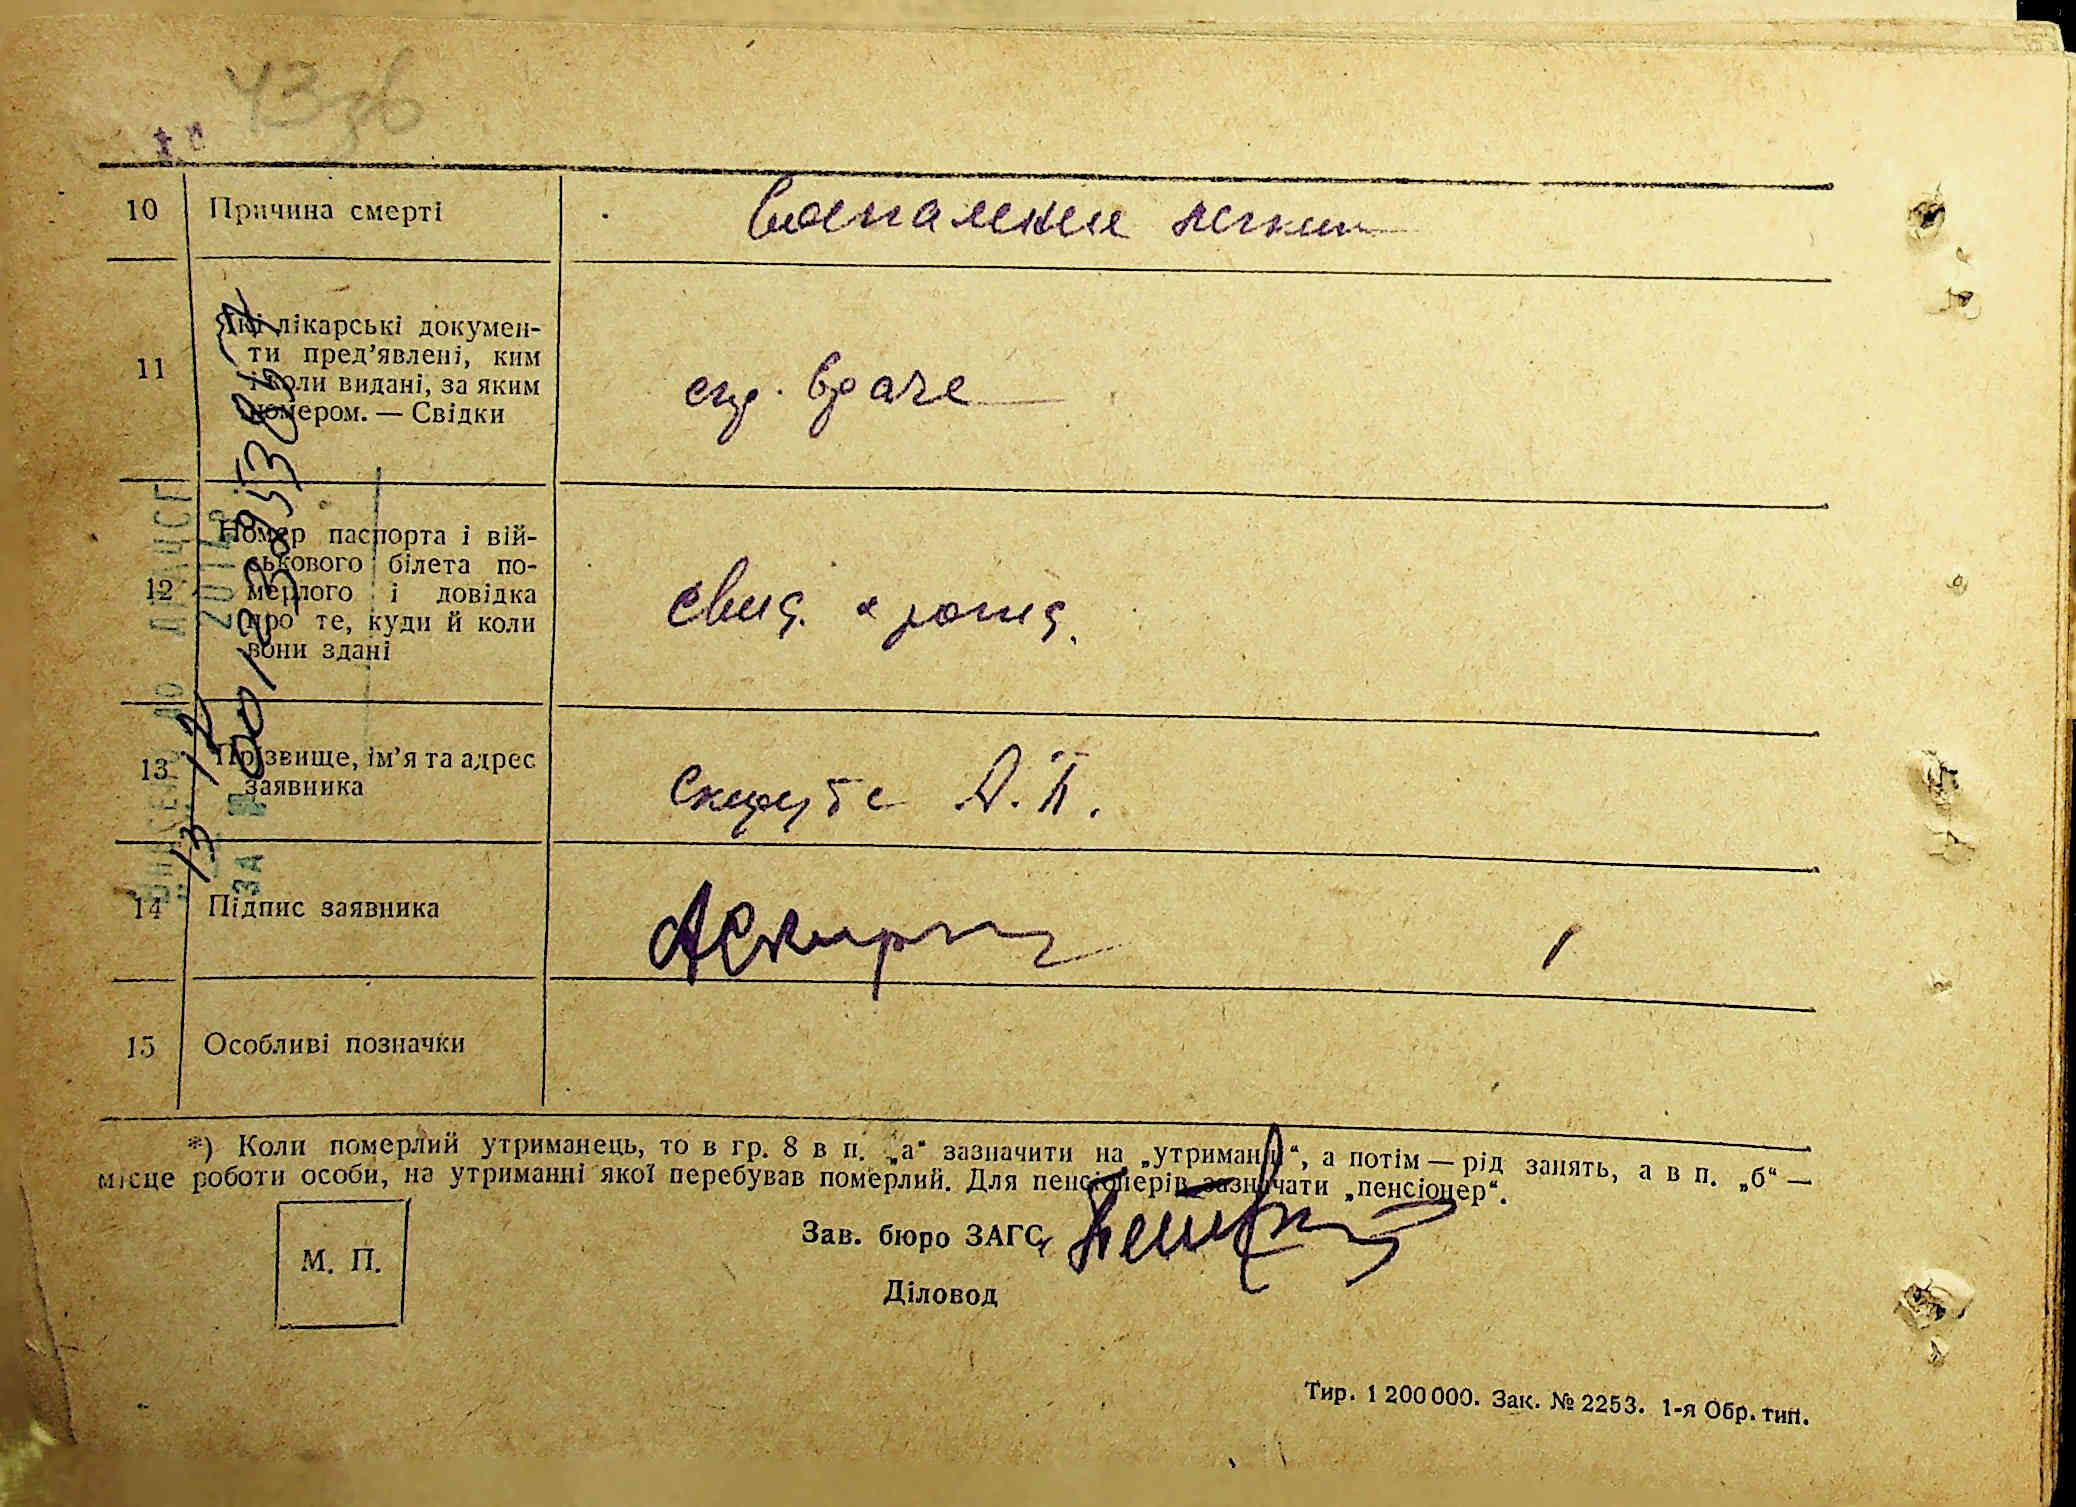 43зв
10 Причина смерті Воспаление легких
11 Які лікарські докумен-
ти пред’явлені, ким
і коли видані, за яким
номером. — Свідки
спр. врача
12 Номер паспорта і вій-
ськового білета по-
мерлого і довідка
про те, куди й коли
вони здані
свид. о рожд.
13 Прізвище, ім’я та адрес
заявника
А. П.
14 Підпис заявника
15 Особливі позначки
*) Коли померлий утриманець, то в гр. 8 в п. „а“ зазначити на „утриманні“, а потім — рід занять, а в п. „б“ —
місце роботи особи, на утриманні якої перебував померлий. Для пенсіонерів зазначати „пенсіонер“.
М. П.
Зав. бюро ЗАГС
Діловод
Тир. 1 200 000. Зак. № 2253. 1-я Обр. тип.